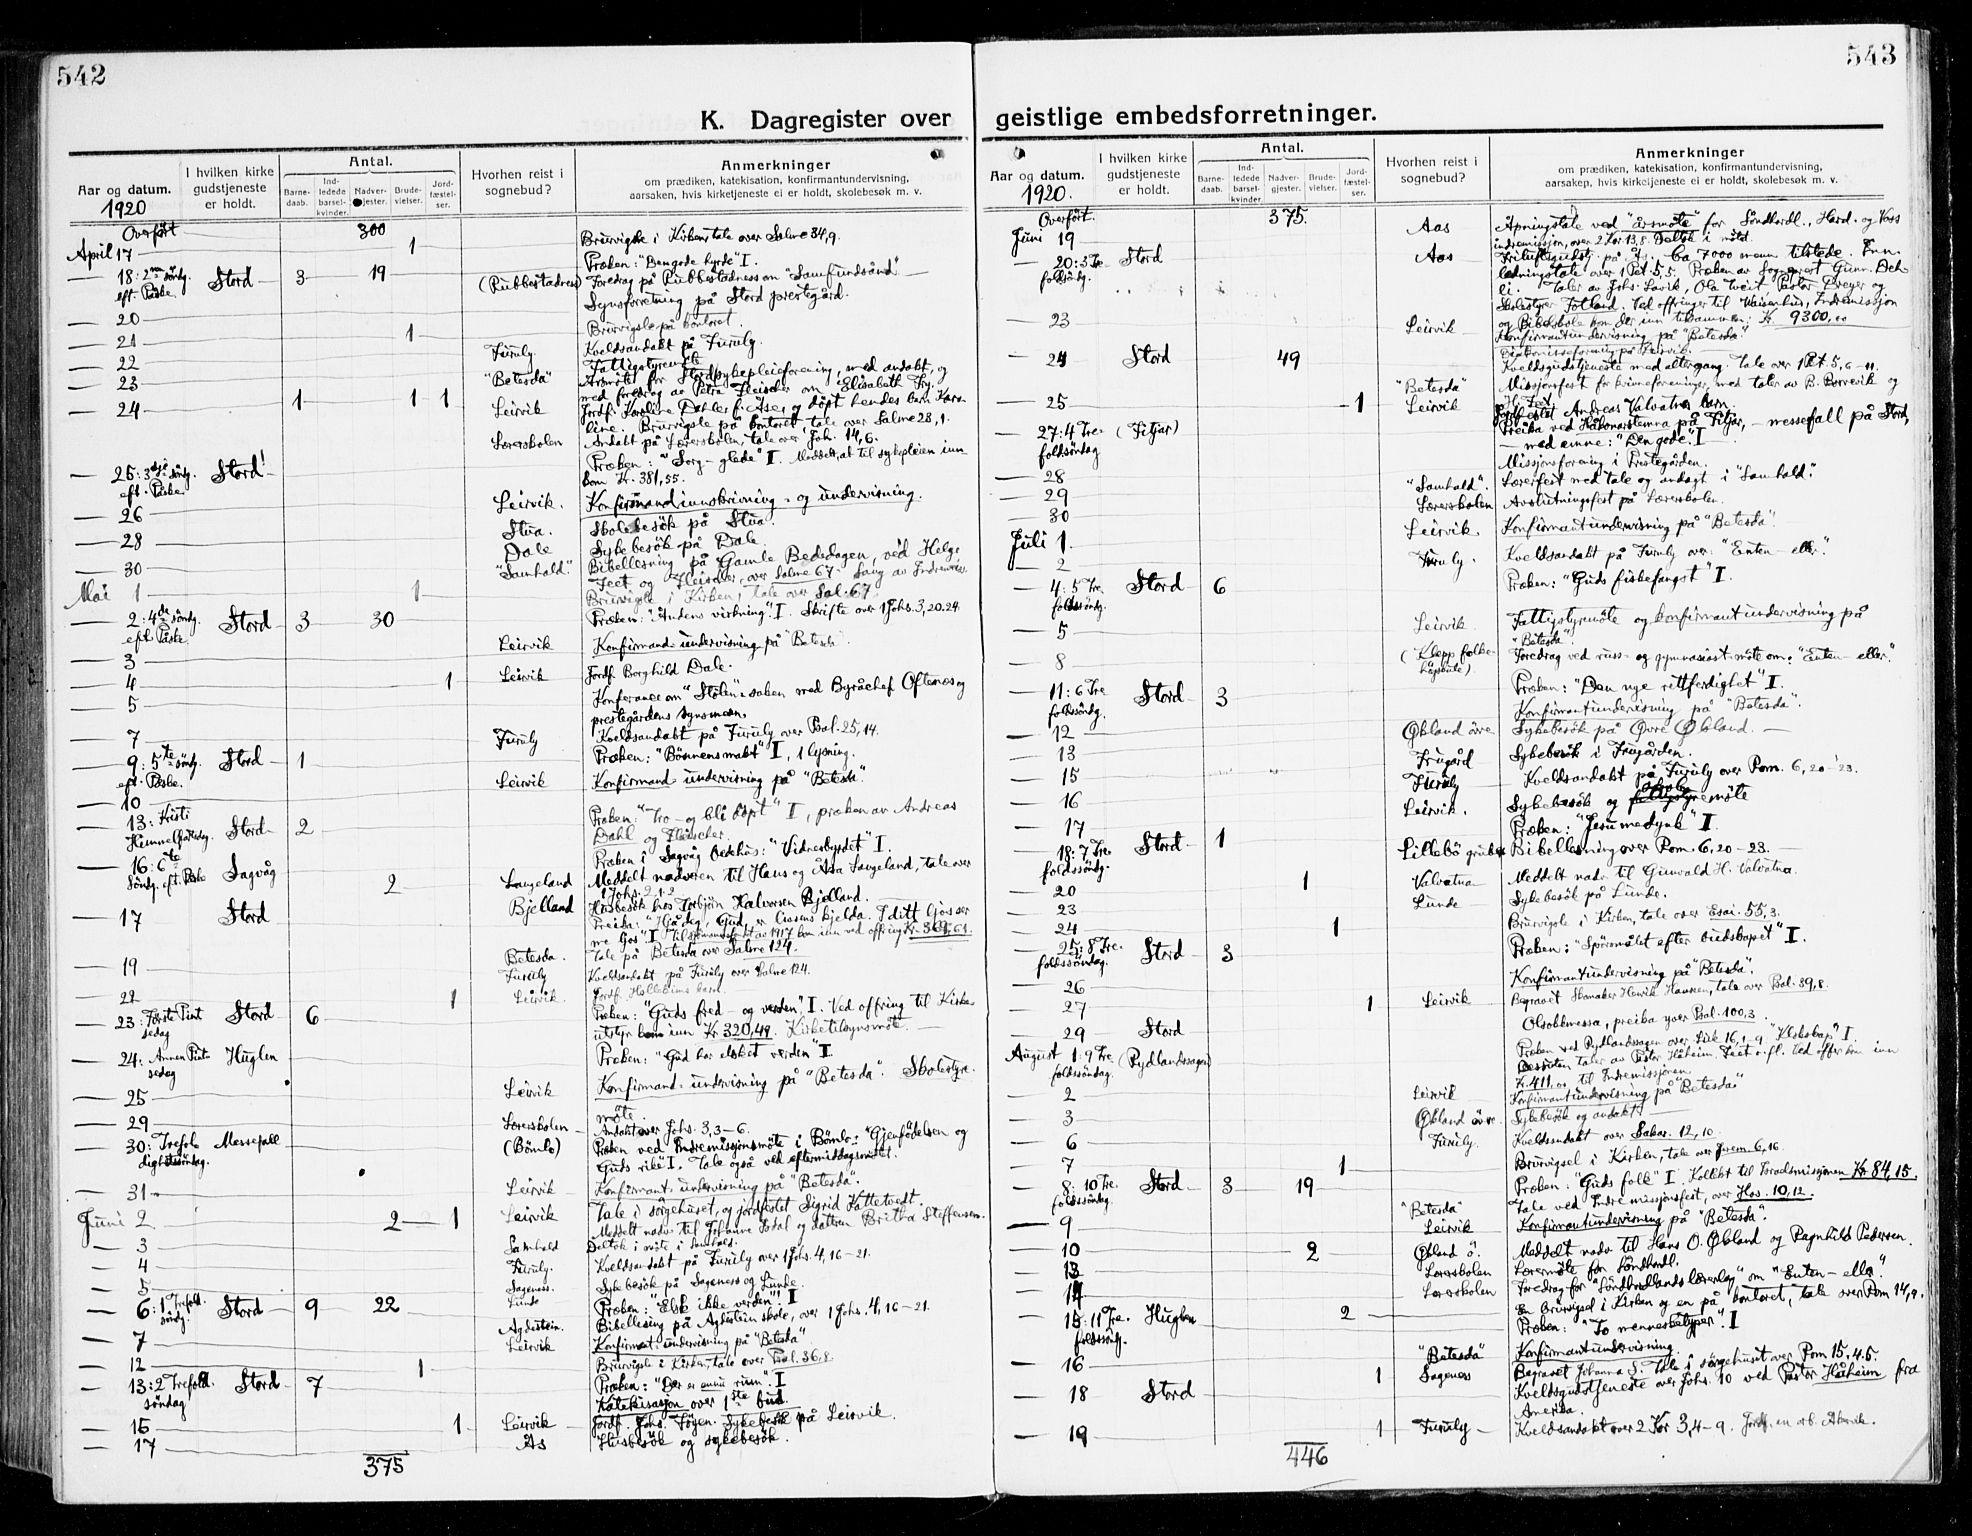 542
K. Dagregister over
Aar og datum.
1920
I hvilken kirke gudstjeneste er holdt.
Antal.
Barne-daab.
Ind-ledede barsel-kvinder.
Nadver-gjester.
Brude-vielser.
Jord-fæstel-ser.
Hvorhen reist i sognebud?
Anmerkninger
om prædiken, katekisation, konfirmantundervisning,
aarsaken, hvis kirketjeneste ei er holdt, skolebesøk m. v.
Overført 300
April 17 1 Brurvigsle i Kirken, tale over Salme 84,9.
Præken: "Den gode hyrde" I.
18: 2 søndg. eft. Påske Stord 3 19 (Rubbestadness) Foredrag på Rubbestadness om "Samfundsånd"
20 Synsforretning på Stord prestegård.
21 1 Brurvigsle på kontoret.
22 Furuly. Kveldsandakt på Furuly.
23 "Betesda" Fattigstyremøte
Årsmøte for Stordsykepleieforening, med andakt, og
med foredrag av Petra Fleischer om "Elisabeth Fry.
24 1 1 1 Leirvik Jordf. Karoline Dahle f. Åse, og døpt hendes barn Karo-
line. Brurvigsle på kontoret, tale over Salme 28,1.
Lærerskolen Andakt på Lærerskolen, tale over Joh. 14,6.
25: 3dje søndg. eft. Påske Stord Præken: "Sorg - glede" I. Meddelt, at til sykepleien inn
kom Kr. 381,55.
26 Leirvik. Konfirmandinnskrivning - og undervisning.
28 Stua. Skolebesøk på Stua.
30 Dale Sykebesøk på Dale.
"Samhald." Bibellesning på Gamle Bededagen, ved Helge
Teet og Fleischer, over Salme 67. Sang av
Mai 1 1 Brurvigsle i Kirken, tale over Sal. 67.
2: 4de søndg. eft. Påske Stord 3 30 Præken: "Åndens virkning" I. Skrifte over 1 Johs. 3, 20. 24
3 Leirvik Konfirmand-undervisning på "Betesda".
4 1 Leirvik Jordf. Borghild Dale.
5 Konferance om "Stølen"-saken med Byråchef Oftenes og
prestegårdens synsmenn.
7 Furuly Kveldsandakt på Furuly over Sal. 25, 14.
9: 5te søndg. eft. Påske. Stord 1 Præken: "Bønnens makt" I, 1 lysning.
10 Leirvik Konfirmand-undervisning på "Betesda"
13: Kristi Himmelfartsdag Stord 2 Præken: "Tro - og bli døpt" I, præken av Andreas
Dahl og Fleischer.
16: 6te søndg. eft. Påske Sagvåg Præken i Sagvåg bedehus: "Vidnesbyrdet" I.
2 Langeland Meddelt nadveren til Hans og Åsa Langeland, tale over
1 Johs. 2,1-2
17 Stord Bjelland Husbesøk hos Torbjørn Halvorsen Bjelland.
Preika: "Hjå deg, Gud, er livsens kjelda. I ditt ljos ser
me ljos" I. kom inn ved offring Kr. 364,61.
Betesda. Tale på Betesda over Salme 124.
19 Furuly Kveldsandakt på Furuly over Salme 124.
22 1 Leirvik. Jordf. barn.
23: Første Pintsedag Stord 6 Præken: "Guds fred - og verden" I. Ved offring til Kirke-
utstyr kom inn Kr. 320,49. Kirketilsynsmøte.
24: Annen Pintsedag Huglen Præken: "Gud har elsket verden" I.
25 Leirvik Konfirmand-undervisning på "Betesda". Skolestyre-
møte.
29 Lærerskolen Andakt over Johs. 3, 3-6.
30: Trefoldighetssøndag. Messefall (Bømlo) Præken ved Indremissjonsmøte i Bømlo: "Gjenfødelsen og
Guds rike" I. Tale også ved eftermiddagsmøtet.
31 Leirvik Konfirmant-undervisning på "Betesda".
Juni 2 2 1 Leirvik Tale i sørgehuset, og jordfestet Sigrid Kattetvedt.
Meddelt nadv. til Johanne Ddal og dattren Britha Steffensen.
3 Samhald Deltok i møte i Samhald.
4 Furuly. Kveldsandakt på Furuly over 1 Johs. 4, 16-21.
5 Sagenes. Lunde Sykebesøk på Sagenes og Lunde.
6: 1 Trefold. søndg. Stord 9 22 Præken: "Elsk ikke verden" I
Agdestein. Bibellesing på Agdestein skole, over 1 Johs. 4, 16-21.
7 Leirvik Konfirmant-undervisning på "Betesda".
12 1 Brurvigsle i Kirken, tale over Sal. 36, 8.
13: 2 Trefold. søndag Stord 7 Præken: "Der er ennu rum". I
Katekisasjon over 1ste bud.
15 1 Leirvik Jordf. Johs. Tøgen. Sykebesøk på Leirvik.
17 Ås Husbesøk og sykebesøk.
375
543
geistlige embedsforretninger.
Aar og datum.
1920.
I hvilken kirke gudstjeneste er holdt.
Antal.
Barne-daab.
Ind-ledede barsel-kvinder
Nadver-gjester.
Brude-vielser.
Jord-fæstel-ser.
Hvorhen reist i sognebud?
Anmerkninger
om prædiken, katekisation, konfirmantundervisning,
aarsakep, hvis kirketjeneste ei er holdt, skolebesøk m. v.
Overført. 375.
Juni 19 Aas Åpningstale ved "årsmøte" for Søndhordl., Hard. og Voss
indremissjon, over 2 Kor. 13, 8. Deltok i møtet.
20: 3 Tre foldsøndg. Stord Aas Friluftsgudstj. på Ås. Ca. 7000 menn tilstede. Inn-
ledningstale over 1 Pet. 5, 5. Præken av Sogneprest Gunn. Deh-
li. Taler av Johs. Lavik, Ola Tveit Pastor Dreyer og
Skolestyrer Fotland. Ved offringer til Vaisenhus, Indremissjon
og Bibelskole kom der inn tilsammen: Kr. 9300,00
23 Leirvik Konfirmantundervisning på "Betesda".
24 Stord 49 Kveldsgudstjeneste med altergang. Tale over 1 Pet. 5, 6-11.
"Betesda" Missjonsfest for kvinneforeninger, med taler av B. Børrevik og
H. Teet.
25 1 Leirvik Jordfestet Andreas Valvatnes barn.
27: 4 Tre foldsøndag (Fitjar) Preika ved Håkonarstemna på Fitjar, - messefall på Stord,
- med emne: "Den gode". I
28 Missjonsforening i Prestegården.
29 "Samhald". Lærerfest med tale og andagt i "Samhald".
30 Lærerskolen Avslutningsfest på Lærerskolen.
Juli 1 Leirvik Konfirmantundervisning på "Betesda".
2 Furuly. Kveldsandakt på Furuly over: "Enten - eller".
4: 5 Tre foldssøndg. Stord 6 Præken: "Guds fiskefangst" I.
5 Leirvik. Fattigstyremøte og konfirmantundervisning på
"Betesda".
8 (Klepp folkehøgskule). Foredrag ved russ- og gymnasiast-møte om: "Enten - eller".
11: 6 Tre foldssøndg. Stord 3 Præken: "Den nye rettferdighet" I.
12 Konfirmantundervisning på "Betesda".
13 Økland øvre Sykebesøk på Øvre Økland.
15 Frugård Sykebesøk i Frugården.
Furuly Kveldsandakt på Furuly over Rom. 6, 20-23.
16 Leirvik. Sykebesøk og skolestyremøte
17
18: 7 Tre foldssøndg. Stord 1 Præken: "Jesu medynk" I.
Lillebø gruber Bibellesning over Rom. 6, 20-23.
20 1 Valvatna Meddelt nadv. til Gunvald H. Valvatna.
23 Lunde Sykebesøk på Lunde.
24 1 Brurvigsle i Kirken, tale over Esai. 55, 3.
25: 8 Tre. foldssøndag. Stord 3 Præken: "Spørsmålet efter budskapet" I.
26 Konfirmantundervisning på "Betesda".
27 1 Leirvik Begravet Skomaker Henrik Hanssen, tale over Sal. 39, 8.
29 Stord Olsokmessa, preika yver Sal. 100, 3.
August 1: 9 Tre foldssøndag. (Rydlandssagen) Præken ved Rydlandssagen over Luk. 16, 1-9 "Klokskap" I
Dessuten taler av Pastor Håheim, Teet o. fl. Ved offer kom inn
Kr. 411,00 til Indremissjonen.
2 Leirvik Konfirmantundervisning på "Betesda".
3 Økland øvre. Sykebesøk og andakt.
6 Furuly. Kveldsandakt over Sakar. 12, 10.
7 1 Brurvigsel i Kirken, tale over Jerem. 6, 16.
8: 10 Tre. foldssøndag Stord 3 19 Præken: "Guds folk" I. Kollekt til Israelsmissjonen Kr. 84,15.
"Betesda" Tale ved Indremissjonsfest, over Hos. 10, 12.
9 Leirvik Konfirmantundervisning på "Betesda".
10 2 Økland ø. Meddelt nadv. til Hans O. Økland og Ragnhild Pedersen.
13 Lærerskolen Lærermøte for Søndhordl.
14 Lærerskolen Foredrag for "Søndhordlands lærerlag" om "Enten - eller".
2 En brurvigsel i Kirken og en på kontoret, tale over Rom 14, 9.
15: 11 Tre. foldssøndg. Huglen Præken: "To mennesketyper". I
16 "Betesda" Konfirmantundervisning.
1 Sagenes Begravet Johanna S. Tale i sørgehuset over Rom 15, 4-5.
18 Stord Kveldsgudstjeneste over Johs. 10 ved Pastor Håheim fra
Amerika.
19 1 Furuly Kveldsandakt over 2 Kor 3, 4-9.
446